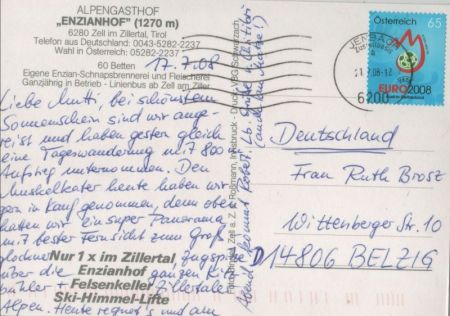 ALPENGASTHOF
„ENZIANHOF" (1270 m)
6280 Zell im Zillertal, Tirol
Telefon aus Deutschland: 0043-5282-2237
Wahl in Österreich: 05282-2237
60 Betten
Eigene Enzian-Schnapsbrennerei und Fleischerei
Ganzjährig in Betrieb - Linienbus ab Zell am Ziller
17.7.08
Liebe Mutti, bei schönstem
Sonnenschein sind wir ange-
reist und haben gestern gleich
eine Tageswanderung mit 800
Aufstieg unternommen. Den
Muskelkater heute haben wir
gern in Kauf genommen, denn oben
hatten wir ein super Panorama
mit bester Fernsicht zum Groß
glockner, Zugspitze
über die ganzen Kitz
bühler + Zillertaler
Alpen. Heute regnet's und am
Nur 1 x im Zillertal
Enzianhof
Felsenkeller
Ski-Himmel-Lifte
Abend kommt
Zell a. Z.
Innsbruck
JENBACH
6200
Österreich 65
EURO2008
Deutschland
Frau Ruth Brosz
Wittenberger Str. 10
D14806 BELZIG